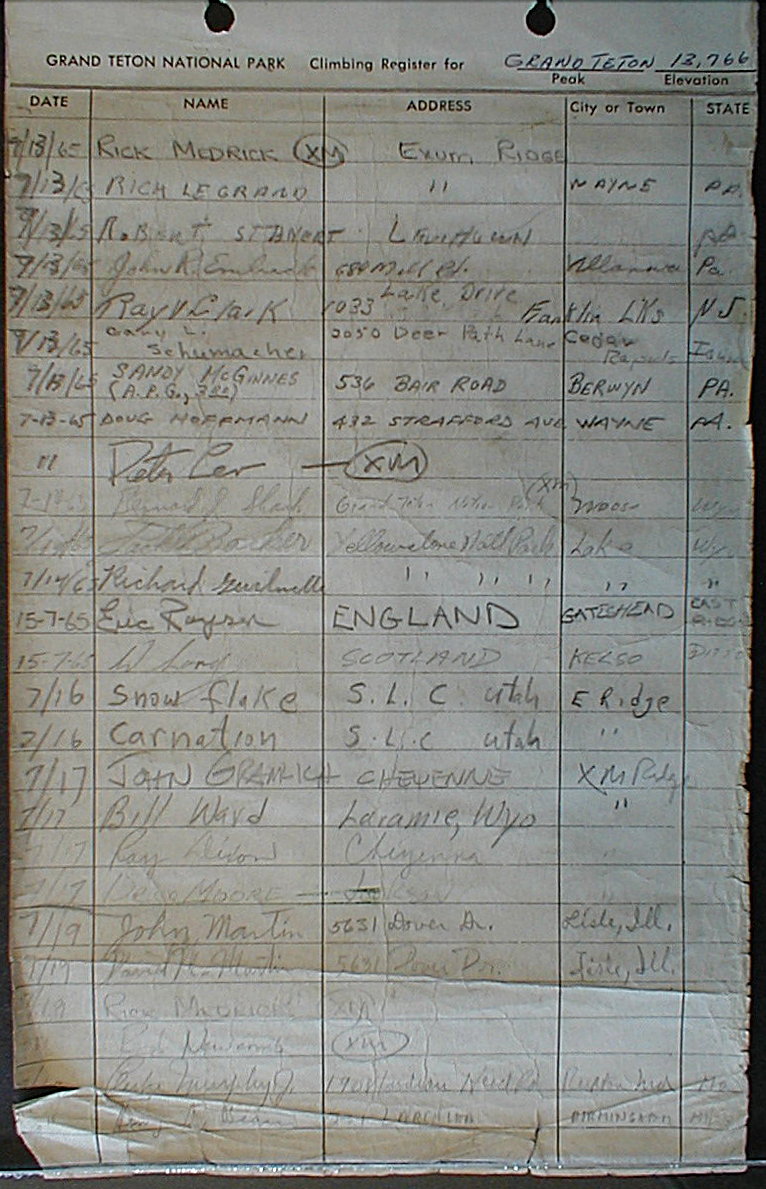 GRAND TETON NATIONAL PARK Climbing Register for GRAND TETON 13,766
Peak Elevation
DATE NAME ADDRESS City or Town STATE
7/13/65 RICK MEDRICK XM EXUM RIDGE
7/13/65 RICH LEGRAND " WAYNE PA.
7/13/65 ROBERT PA
7/13/65 John R. Mill Rd. Villanova Pa.
7/13/65 Ray V Clark 1033 Lake Drive Franklin LKs NJ.
7/13/65 Gary L. Schumacher 2050 Deer Path Lane Cedar Rapids Iowa
7/13/65 SANDY McGINNES (A.P.G., 322) 536 BAIR ROAD BERWYN PA.
7-13-65 DOUG HOFFMANN 432 STRAFFORD AVE WAYNE PA.
" Peter Lev — XM
Bernard J. Grand Teton Park (XM) Moose Wyo
Yellowstone Natl Park Lake Wyo
7/14/65 Richard " " " " "
15-7-65 Eric Rayson ENGLAND GATESHEAD
15-7-65 W Long SCOTLAND KELSO DITTO
7/16 Snow flake S. L. C. utah E Ridge
7/16 Carnation S. L. C utah "
7/17 JOHN GRAMLICH CHEYENNE XM Ridge
7/17 Bill Ward Laramie, Wyo "
7/17 Ray Dixon Cheyenne "
7/17 MOORE — Jackson "
7/19 John Martin 5631 Dover Dr. Lisle, Ill.
7/19 David M. Martin 5631 Dover Dr. Lisle, Ill.
RICK MEDRICK XM
Newcomb XM
Murphy Jr. Indian Mo
BIRMINGHAM